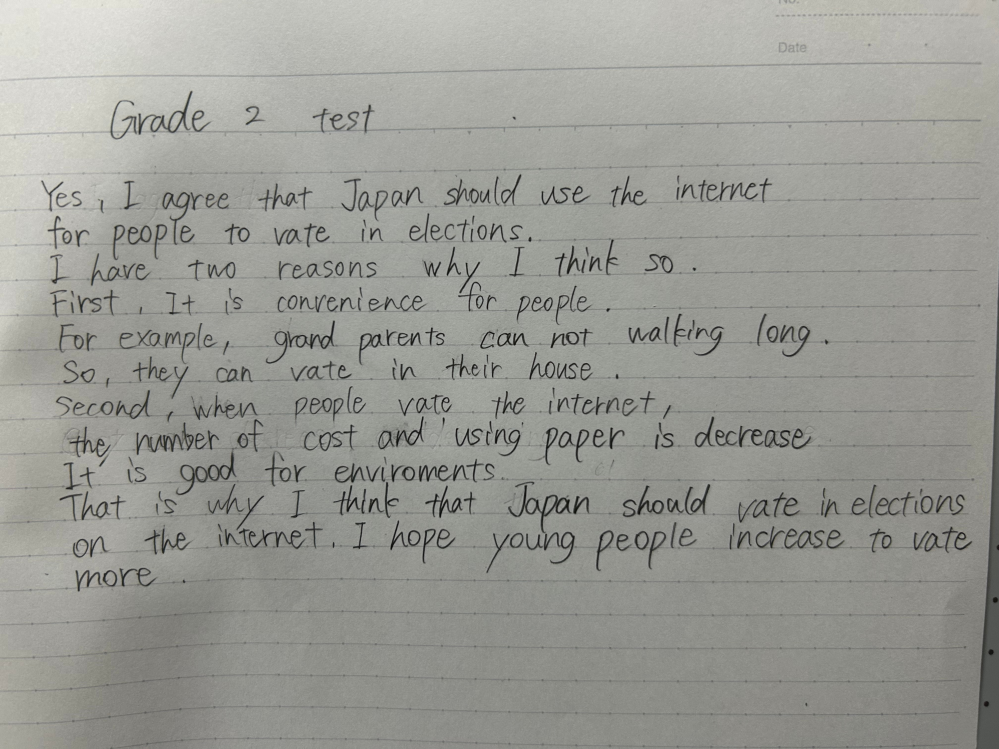 No.
Date
Grade 2 test
Yes, I agree that Japan should use the internet
for people to vate in elections.
I have two reasons why I think so.
First, It is convenience for people.
For example, grand parents can not walking long.
So, they can vate in their house.
Second, when people vate the internet,
the number of cost and using paper is decrease
It is good for enviroments.
That is why I think that Japan should vate in elections
on the internet. I hope young people increase to vate
more.